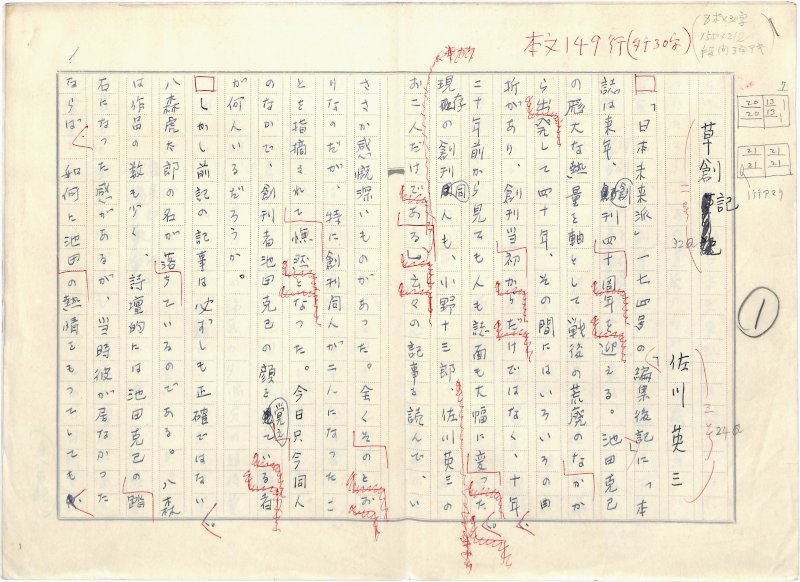 本文149行(タテ30字)
8ポ×30字
草創記
二号
32Q
佐川英三
三号
24Q
1
「日本未来派」一七四号の編集後記に「本
誌は来年、創刊四十周年を迎える。池田克己
の厖大な熱量を軸として戦後の荒廃のなかか
ら出発して四十年、その間にはいろいろの曲
折があり、創刊当初からだけではなく、十年
二十年前から見ても人も誌面も大幅に変った。
現存の創刊同人も、小野十三郎 佐川英三の
お二人だけである」云々の記事を読んで、い
ささか感慨深いものがあった。全くそのとお
りなのだが、特に創刊同人が二人になったこ
とを指摘されて憮然となった。今日只今同人
のなかで、創刊者池田克己の顔を覚えている者
が何人いるだろうか。
しかし前記の記事は必ずしも正確ではない。
八森虎太郎の名が落ちているのである。八森
は作品の数も少く、詩壇的には池田克己の踏
石になった感があるが、当時彼が居なかった
ならば、如何に池田の熱情をもってしても、
20 13
20 13
21 21
21 21